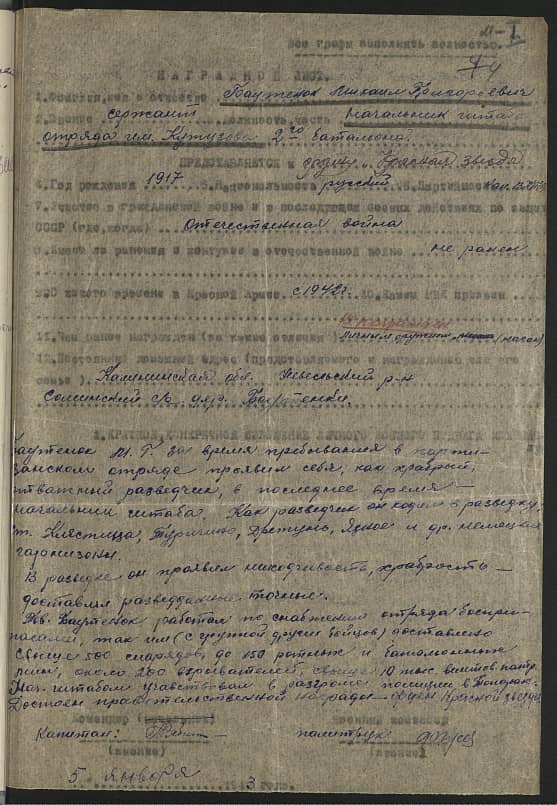 Все графы заполнять полностью.
НАГРАДНОЙ ЛИСТ.
1. Фамилия, имя и отчество Баутенок Михаил Григорьевич
2. Звание сержант Должность, часть Начальник штаба
отряда им. Кутузова 2го батальона.
ПРЕДСТАВЛЯЕТСЯ к ордену "Красная звезда"
4. Год рождения 1917 5. Национальность русский 6. Партийность
7. Участие в гражданской войне и в последующих боевых действиях по защите
СССР (где, когда) Отечественная война
8. Имеет ли ранения и контузии в отечественной войне не ранен
9. С какого времени в Красной Армии с 1942г. 10. Каким РВК призван
11. Чем ранее награжден (за какие отличия)
12. Постоянный домашний адрес (представляемого к награждению или его
семьи) Калининская обл. Невельский р-н
с/с дер. Баутенки.
1. КРАТКОЕ, КОНКРЕТНОЕ ИЗЛОЖЕНИЕ ЛИЧНОГО БОЕВОГО ПОДВИГА
Баутенок М.Г. за время пребывания в парти-
занском отряде проявил себя, как храбрый,
отважный разведчик, в последнее время —
начальник штаба. Как разведчик он ходил в разведку
Клястица, Дретунь, и др. немецкия
гарнизоны.
В разведке он проявил находчивость, храбрость —
доставлял разведданные точные.
Тов. Баутенок работал по снабжению отряда боепри-
пасами, так им (с группой других бойцов) доставлено
свыше 500 снарядов, до 150 ротных и батальонных
мин, около 200 взрывателей, свыше 10 тыс. патр.
Нач. штабом участвовал в разгроме
Достоин правительственной награды — Орден Красной звезды
Командир Военный комиссар
Капитан: политрук
(подпись) (подпись)
5 января 3